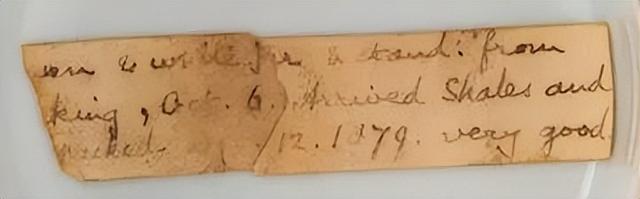 on & white for & stand: from
king, Oct. 6. Arrived Shales and
12. 1879. very good.